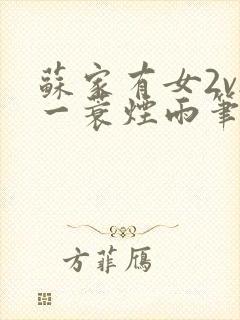 蘇家有女2v
一蓑煙雨筆
方菲鴈